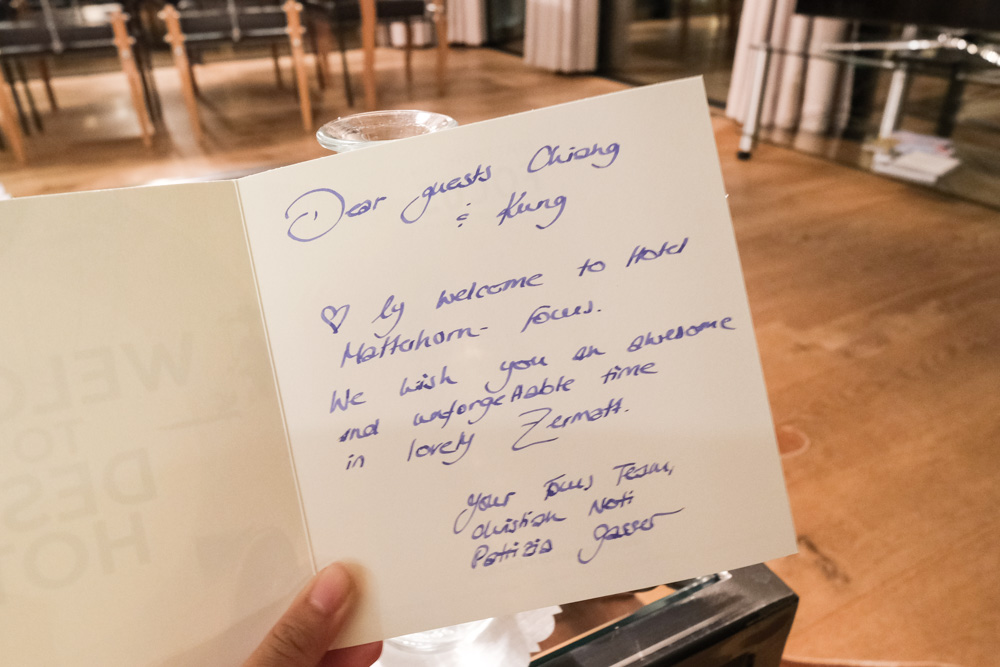 Dear guests Chiang
& Kung
♡ly welcome to Hotel
Matterhorn- Focus.
We wish you an awesome
and unforgettable time
in lovely Zermatt.
Your Focus Team,
Christian Noti
Patrizia Gasser